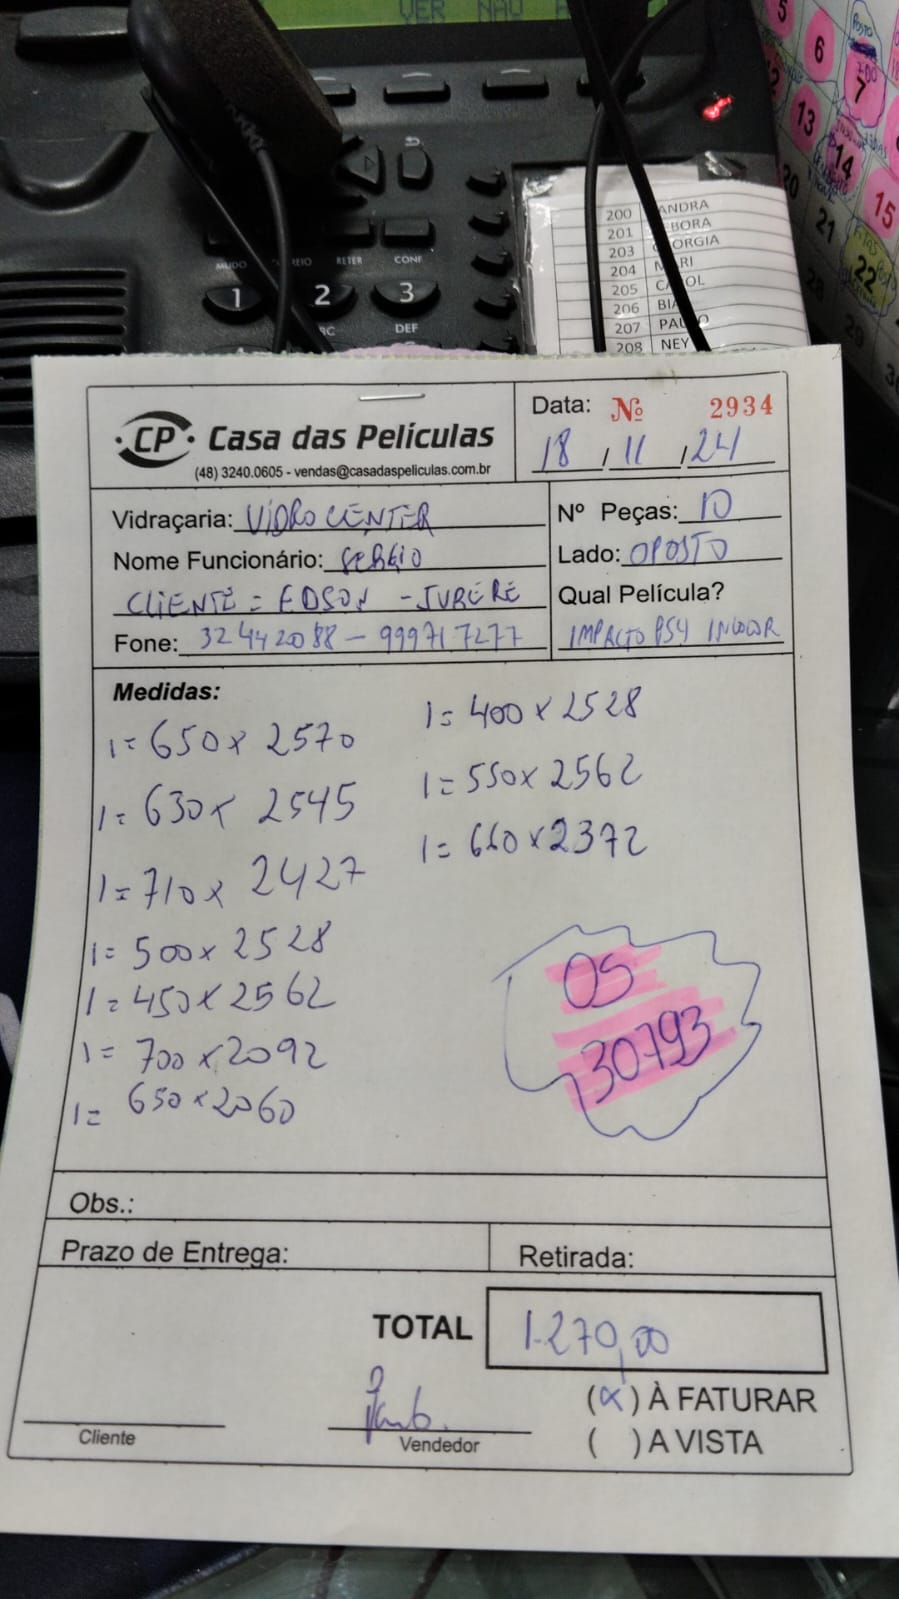 VER NÃO
MUDO RETER CONF
1 2 3
DEF
5
6
7
13
14
15
20
21
22
28
200 ANDRA
201 EBORA
203 ORGIA
204 M RI
205 C OL
206 BIA
207 PAU O
208 NEY
CP Casa das Películas
(48) 3240.0605 - vendas@casadaspeliculas.com.br
Data: Nº 2934
18 / 11 / 24
Vidraçaria: VIDRO CENTER
Nome Funcionário: SERGIO
CLIENTE = EDSON - JURERE
Fone: 32442088 - 999717277
Nº Peças: 10
Lado: OPOSTO
Qual Película?
IMPACTO PS4 INCOLOR
Medidas:
1= 650 x 2570
1= 630 x 2545
1= 710 x 2427
1= 500 x 2528
1= 450 x 2562
1= 700 x 2092
1= 650 x 2060
1= 400 x 2528
1= 550 x 2562
1= 660 x 2372
OS
30793
Obs.:
Prazo de Entrega:
Retirada:
TOTAL 1.270,00
(X) À FATURAR
( ) A VISTA
Cliente
Vendedor